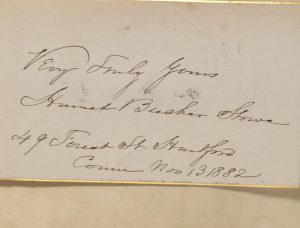 Very Truly Yours
Harriet Beecher Stowe
49 Forest St Hartford
Conn Nov 13 1882